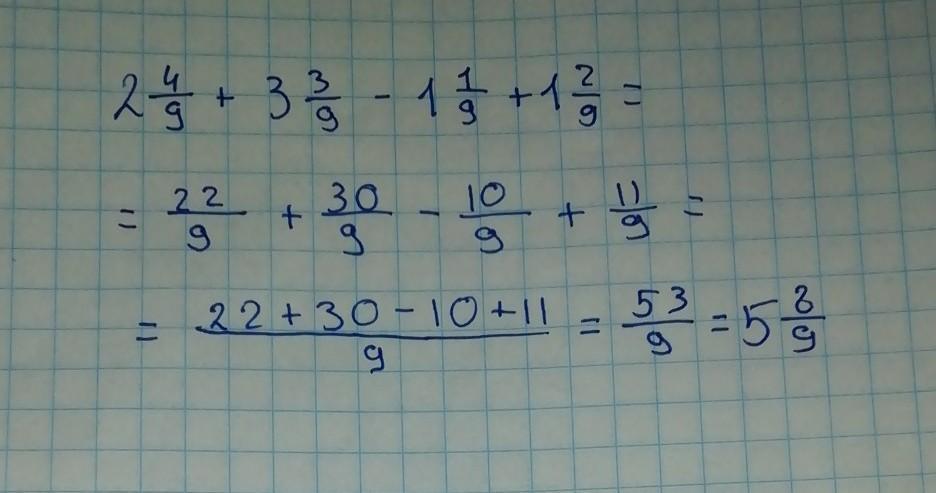 2 4/9 + 3 3/9 - 1 1/9 + 1 2/9 =
= 22/9 + 30/9 - 10/9 + 11/9 =
= (22+30-10+11)/9 = 53/9 = 5 8/9